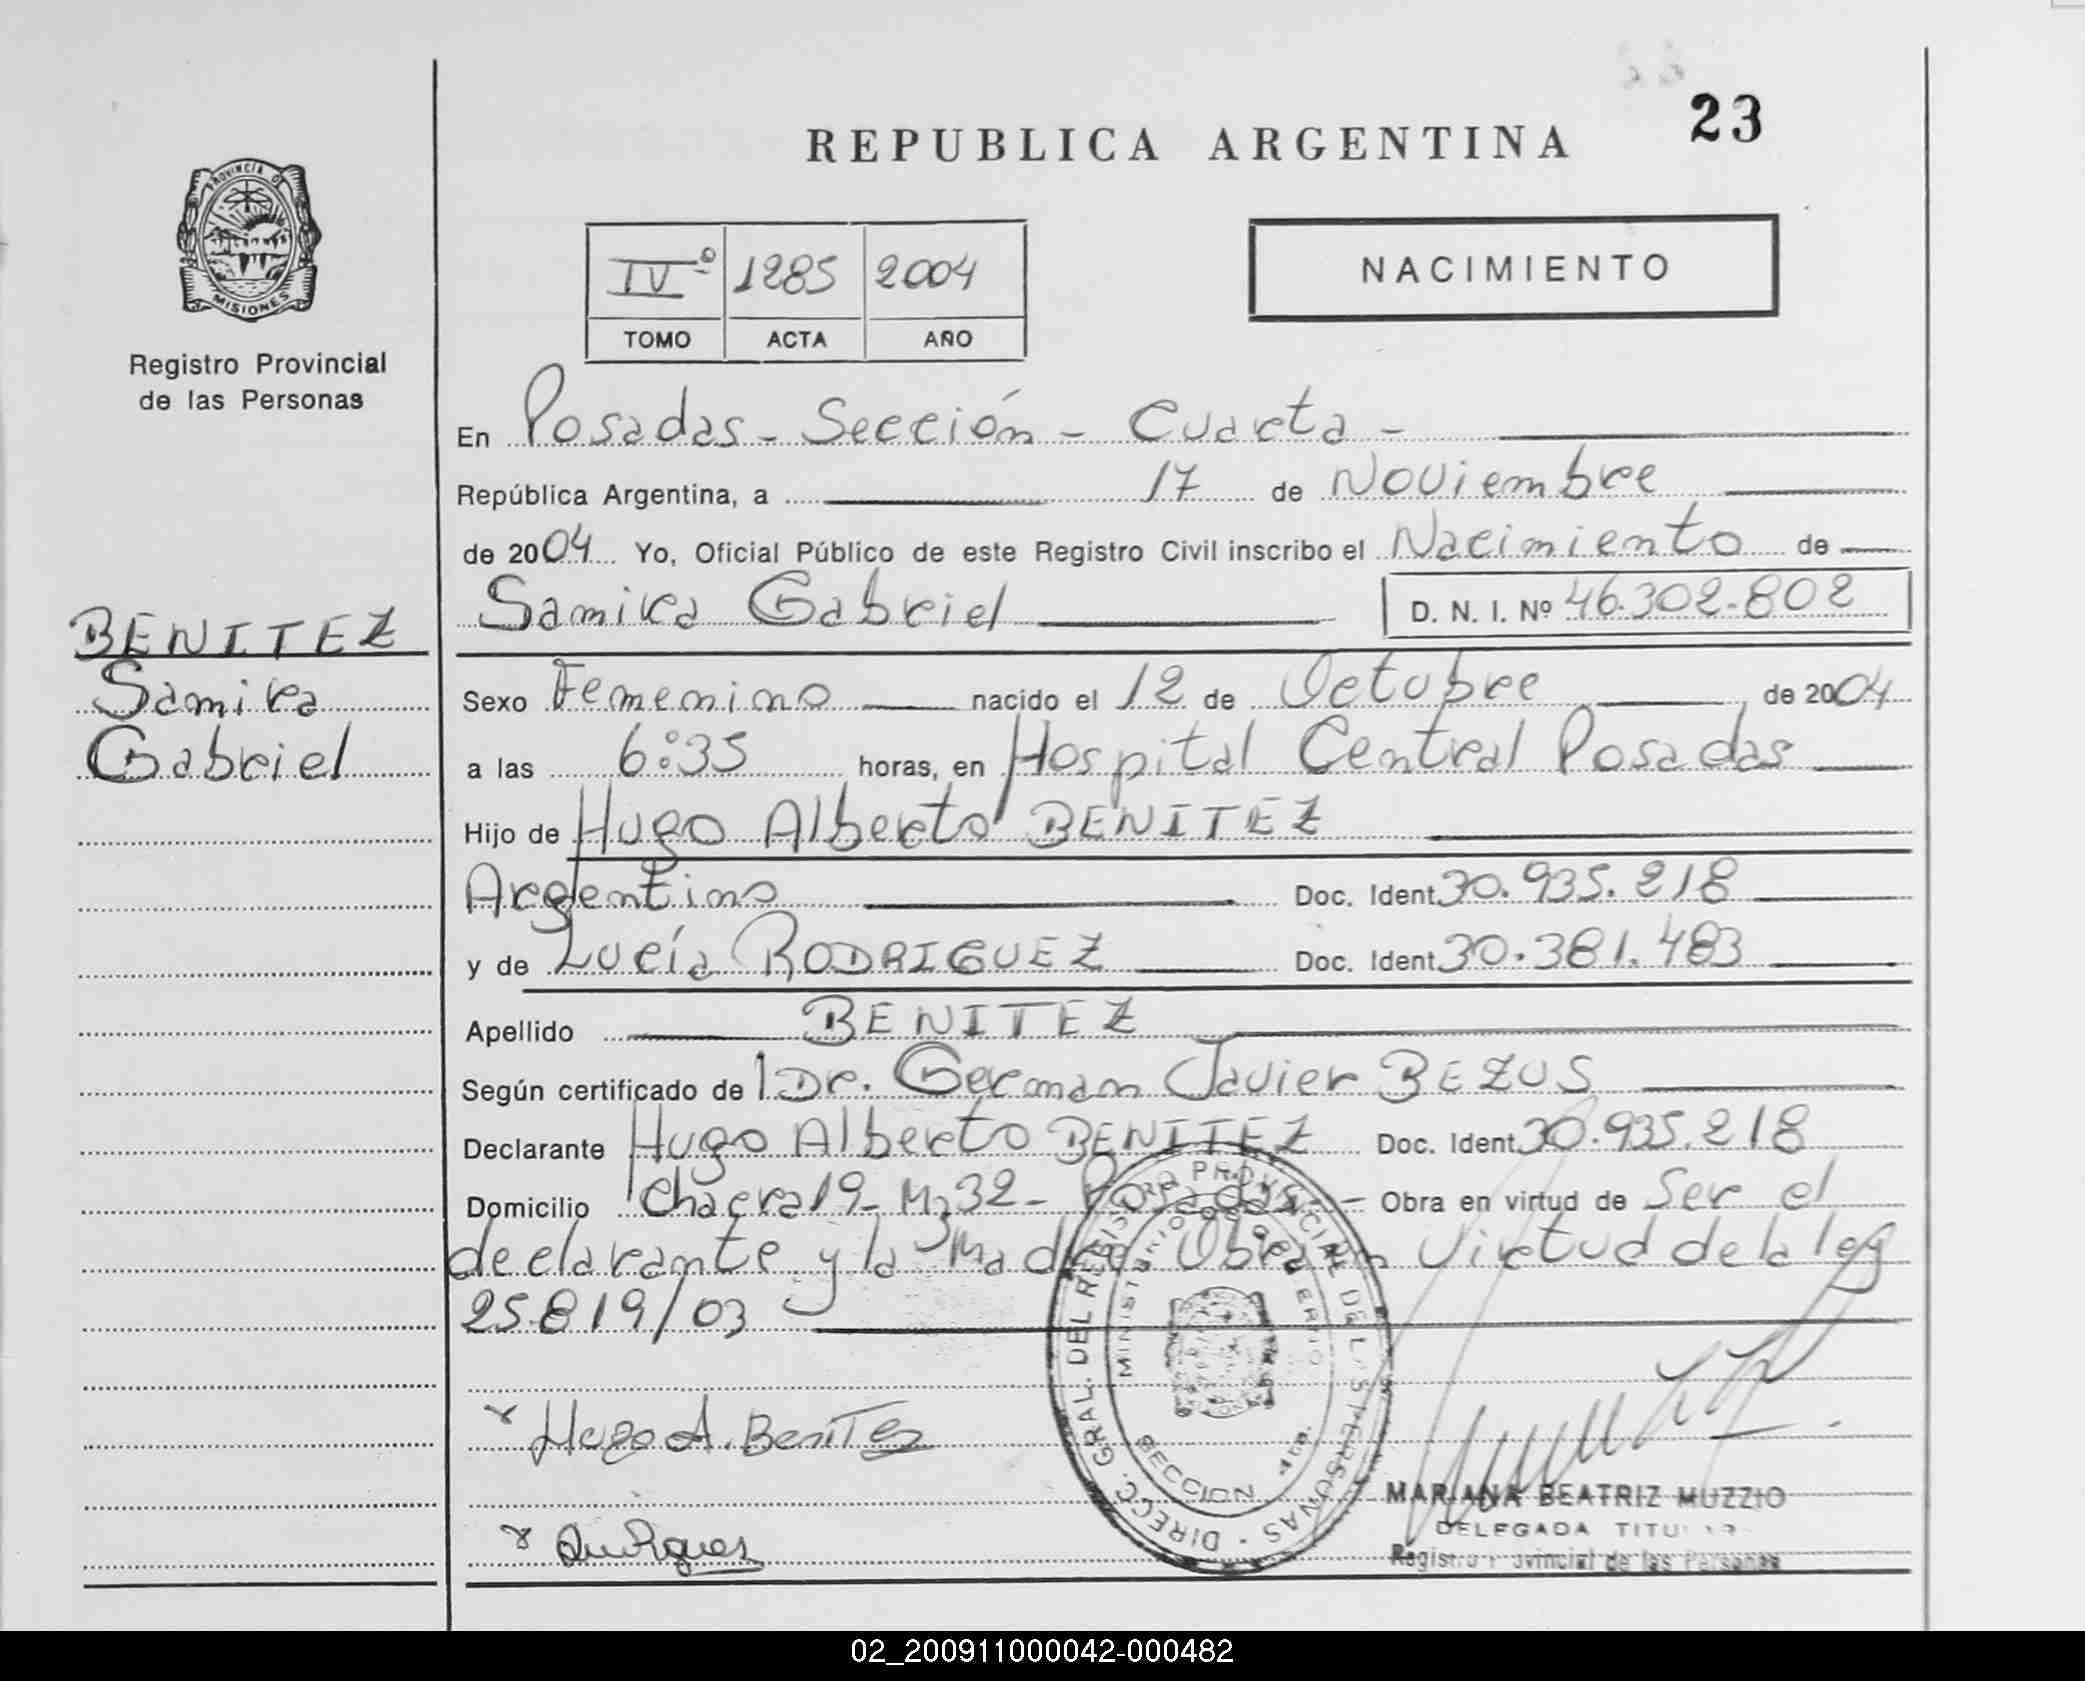 23
REPUBLICA ARGENTINA
PROVINCIA DE
MISIONES
Registro Provincial
de las Personas
IVº 1285 2004
TOMO ACTA AÑO
NACIMIENTO
En Posadas - Sección - Cuarta -
República Argentina, a 17 de Noviembre
de 2004 Yo, Oficial Público de este Registro Civil inscribo el Nacimiento de
Samira Gabriel D. N. I. Nº 46.302.802
BENITEZ
Samira
Gabriel
Sexo Femenino nacido el 12 de Octubre de 2004
a las 6:35 horas, en Hospital Central Posadas
Hijo de Hugo Alberto BENITEZ
Argentino Doc. Ident. 30.935.218
y de Lucía RODRIGUEZ Doc. Ident. 30.381.483
Apellido BENITEZ
Según certificado de Dr. German Javier BEZUS
Declarante Hugo Alberto BENITEZ Doc. Ident. 30.935.218
Domicilio Chacra 19 - Mz 32 - Posadas - Obra en virtud de Ser el
declarante y la Madre Obra en Virtud de la ley
25.819/03
Hugo A. Benitez
DIRECC. GRAL. DEL REGISTRO PROVINCIAL DE LAS PERSONAS
MINISTERIO DE GOBIERNO
SECCION 4ta.
MARIANA BEATRIZ MUZZIO
DELEGADA TITULAR
Registro Provincial de las Personas
02_200911000042-000482